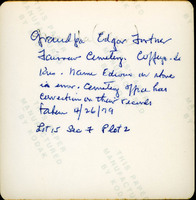 Grandpa (Edgar) Fortner
Fairview Cemetery. Coffeyville
Kan. Name Edison on stone
is error. Cemetery office has
correction on their records
taken 4/26/79
Lot 15 Sec 7 Plot 2